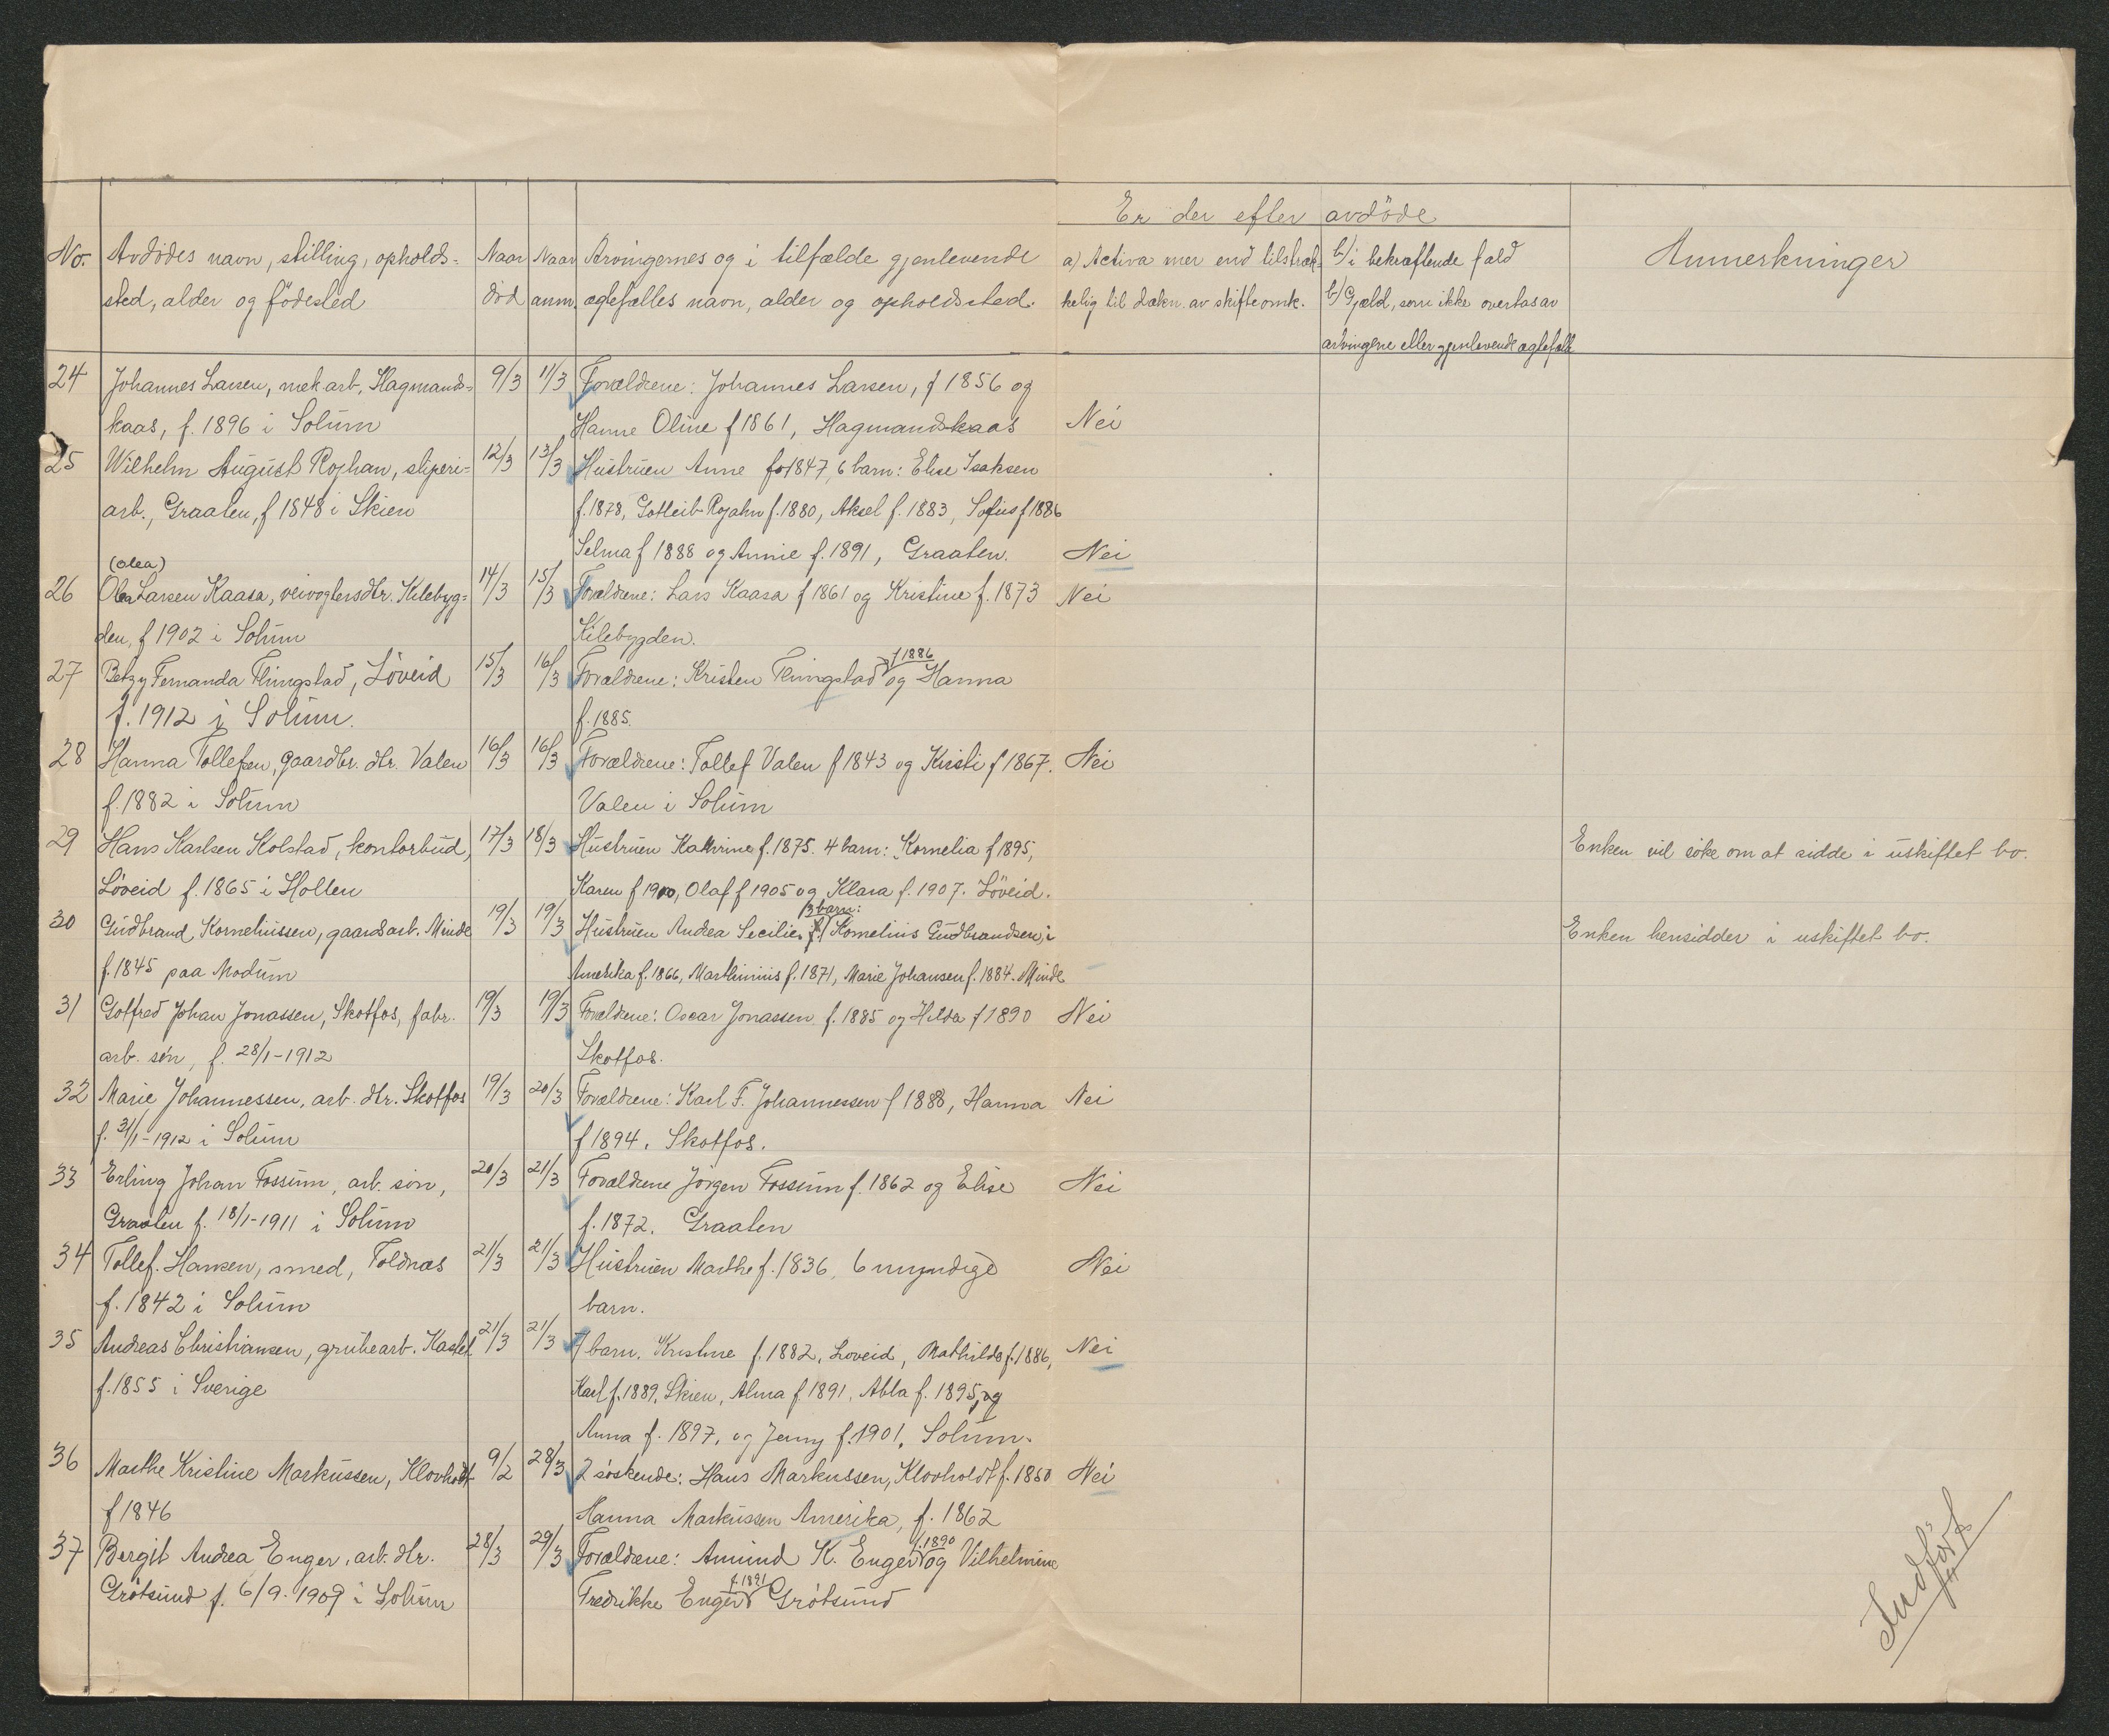 Er der efter avdöde
No. Avdödes navn, stilling, opholds- Naar Naar Arvingernes og i tilfælde gjenlevende a) Activa mer end tilstræk- b) i bekræftende fald Anmerkninger
sted, alder og födested död anm. ægtefælles navn, alder og opholdssted. kelig til dækn. av skifteomk. b) Gjæld, som ikke overtas av
arvingene eller gjenlevende ægtefælle
24 Johannes Larsen, mek arb, Hagmands- 9/3 11/3 Forældrene: Johannes Larsen, f 1856 og
kaas, f. 1896 i Solum Hanne Oline f 1861, Hagmandskaas Nei
25 Wilhelm August Rojhan, sliperi- 12/3 13/3 Hustruen Anne f 1847, 6 barn: Elise Isaksen
arb., Graaten, f 1848 i Skien f. 1878, Gotleib Rojahn f. 1880, Aksel f. 1883, Sofus f 1886
Selma f 1888 og Annie f. 1891, Graaten. Nei
(Olea)
26 Olea Larsen Kaasa, veivogtersdtr. Kilebyg- 14/3 15/3 Forældrene: Lars Kaasa f 1861 og Kristine f. 1873 Nei
den, f 1902 i Solum Kilebygden.
f 1886
27 Betzy Fernanda Flingstad, Löveid 15/3 16/3 Forældrene: Kristen Flingstad og Hanna
f. 1912 i Solum. f. 1885.
28 Hanna Tollefsen, gaardbr. dtr. Valen 16/3 16/3 Forældrene: Tollef Valen f 1843 og Kirsti f 1867. Nei
f. 1882 i Solum Valen i Solum
29 Hans Karlsen Kolstad, kontorbud, 17/3 18/3 Hustruen Kathrine f. 1875. 4 barn: Kornelia f 1895, Enken vil söke om at sidde i uskiftet bo.
Löveid f. 1865 i Hollen Karen f 1900, Olaf f 1905 og Klara f. 1907. Löveid.
3 barn:
30 Gudbrand Korneliussen, gaardsarb. Minde 19/3 19/3 Hustruen Andrea Secilie. Kornelius Gudbrandsen, i Enken hensidder i uskiftet bo.
f. 1845 paa Modum Amerika f. 1866, Marthinius f. 1871, Marie Johansen f. 1884. Minde
31 Gotfred Johan Jonassen, Skotfos, fabr. 19/3 19/3 Forældrene: Oscar Jonassen f. 1885 og Hilda f 1890 Nei
arb. sön, f. 28/1-1912 Skotfos.
32 Marie Johannessen, arb. dtr. Skotfos 19/3 20/3 Forældrene: Karl F. Johannessen f 1888, Hanna Nei
f. 31/1-1912 i Solum f 1894. Skotfos.
33 Erling Johan Fossum, arb. sön, 20/3 21/3 Forældrene Jörgen Fossum f. 1862 og Elise Nei
Graaten f. 18/1-1911 i Solum f. 1872. Graaten
34 Tollef. Hansen, smed, Foldnæs 21/3 21/3 Hustruen Marthe f. 1836, 6 myndige Nei
f. 1842 i Solum barn.
35 Andreas Christiansen, grubearb. Kastet 21/3 21/3 7 barn. Kristine f. 1882, Loveid, Mathilde f. 1886, Nei
f. 1855 i Sverige Karl f. 1889, Skien, Alma f. 1891, Abla f. 1895, og
Anna f. 1897, og Jenny f. 1901, Solum.
36 Marthe Kristine Markussen, Klovholdt 9/2 28/3 2 söskende: Hans Markussen, Klovholdt f. 1850 Nei
f 1846 Hanna Markussen Amerika, f. 1862
f. 1890
37 Bergit Andrea Enger, arb. dtr. 28/3 29/3 Forældrene: Amund K. Enger og Vilhelmine
f. 1891
Grötsund f. 6/9-1909 i Solum Fredrikke Enger Grötsund
Indført